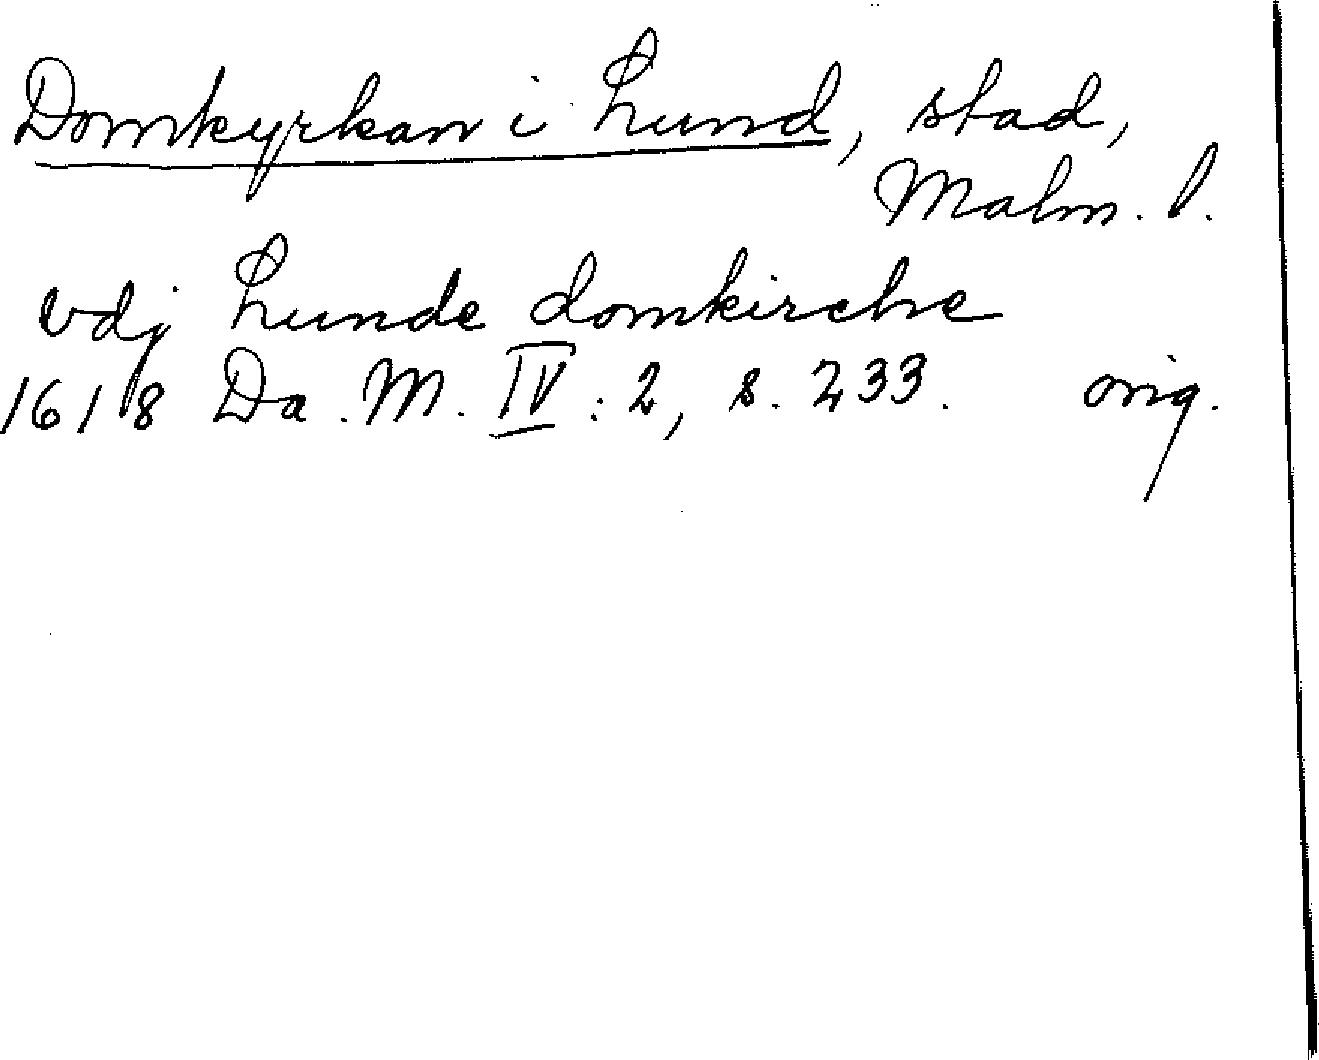 Domkyrkan i Lund, stad,
Malm. l.
vdj Lunde domkirche
1618 Da. M. IV : 2, s. 233. orig.